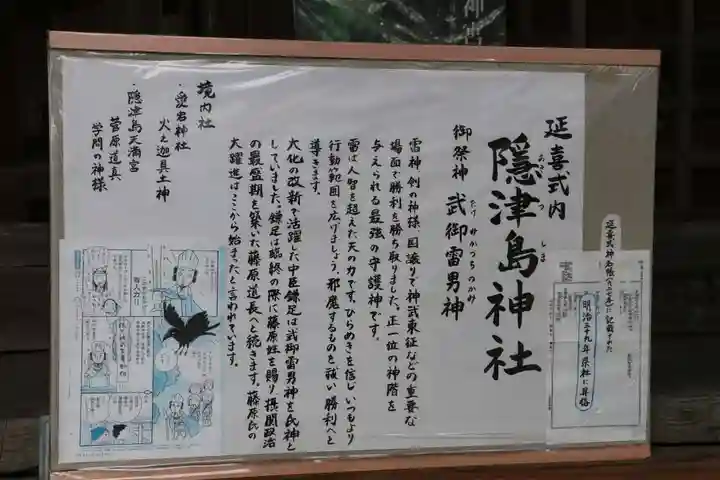 延喜式内
隠津島神社
おきつしま
御祭神 武御雷男神
たけみかづちのかみ
雷神、剣の神様、国譲りで神武東征などの重要な
場面で勝利を勝ち取りました。正一位の神階を
与えられる最強の守護神です。
雷は人智を超えた天の力です。ひらめきを信じいつもより
行動範囲を広げましょう。邪魔するものを祓い勝利へと
導きます。
大化の改新で活躍した中臣鎌足は武御雷男神を氏神と
していました。鎌足は臨終の際に藤原姓を賜り、摂関政治
の最盛期を築いた藤原道長へと続きます。藤原氏の
大躍進はここから始まったと言われています。
境内社
・愛宕神社
火之迦具土神
・隠津島天満宮
菅原道真
学問の神様
明治三十九年県社に昇格